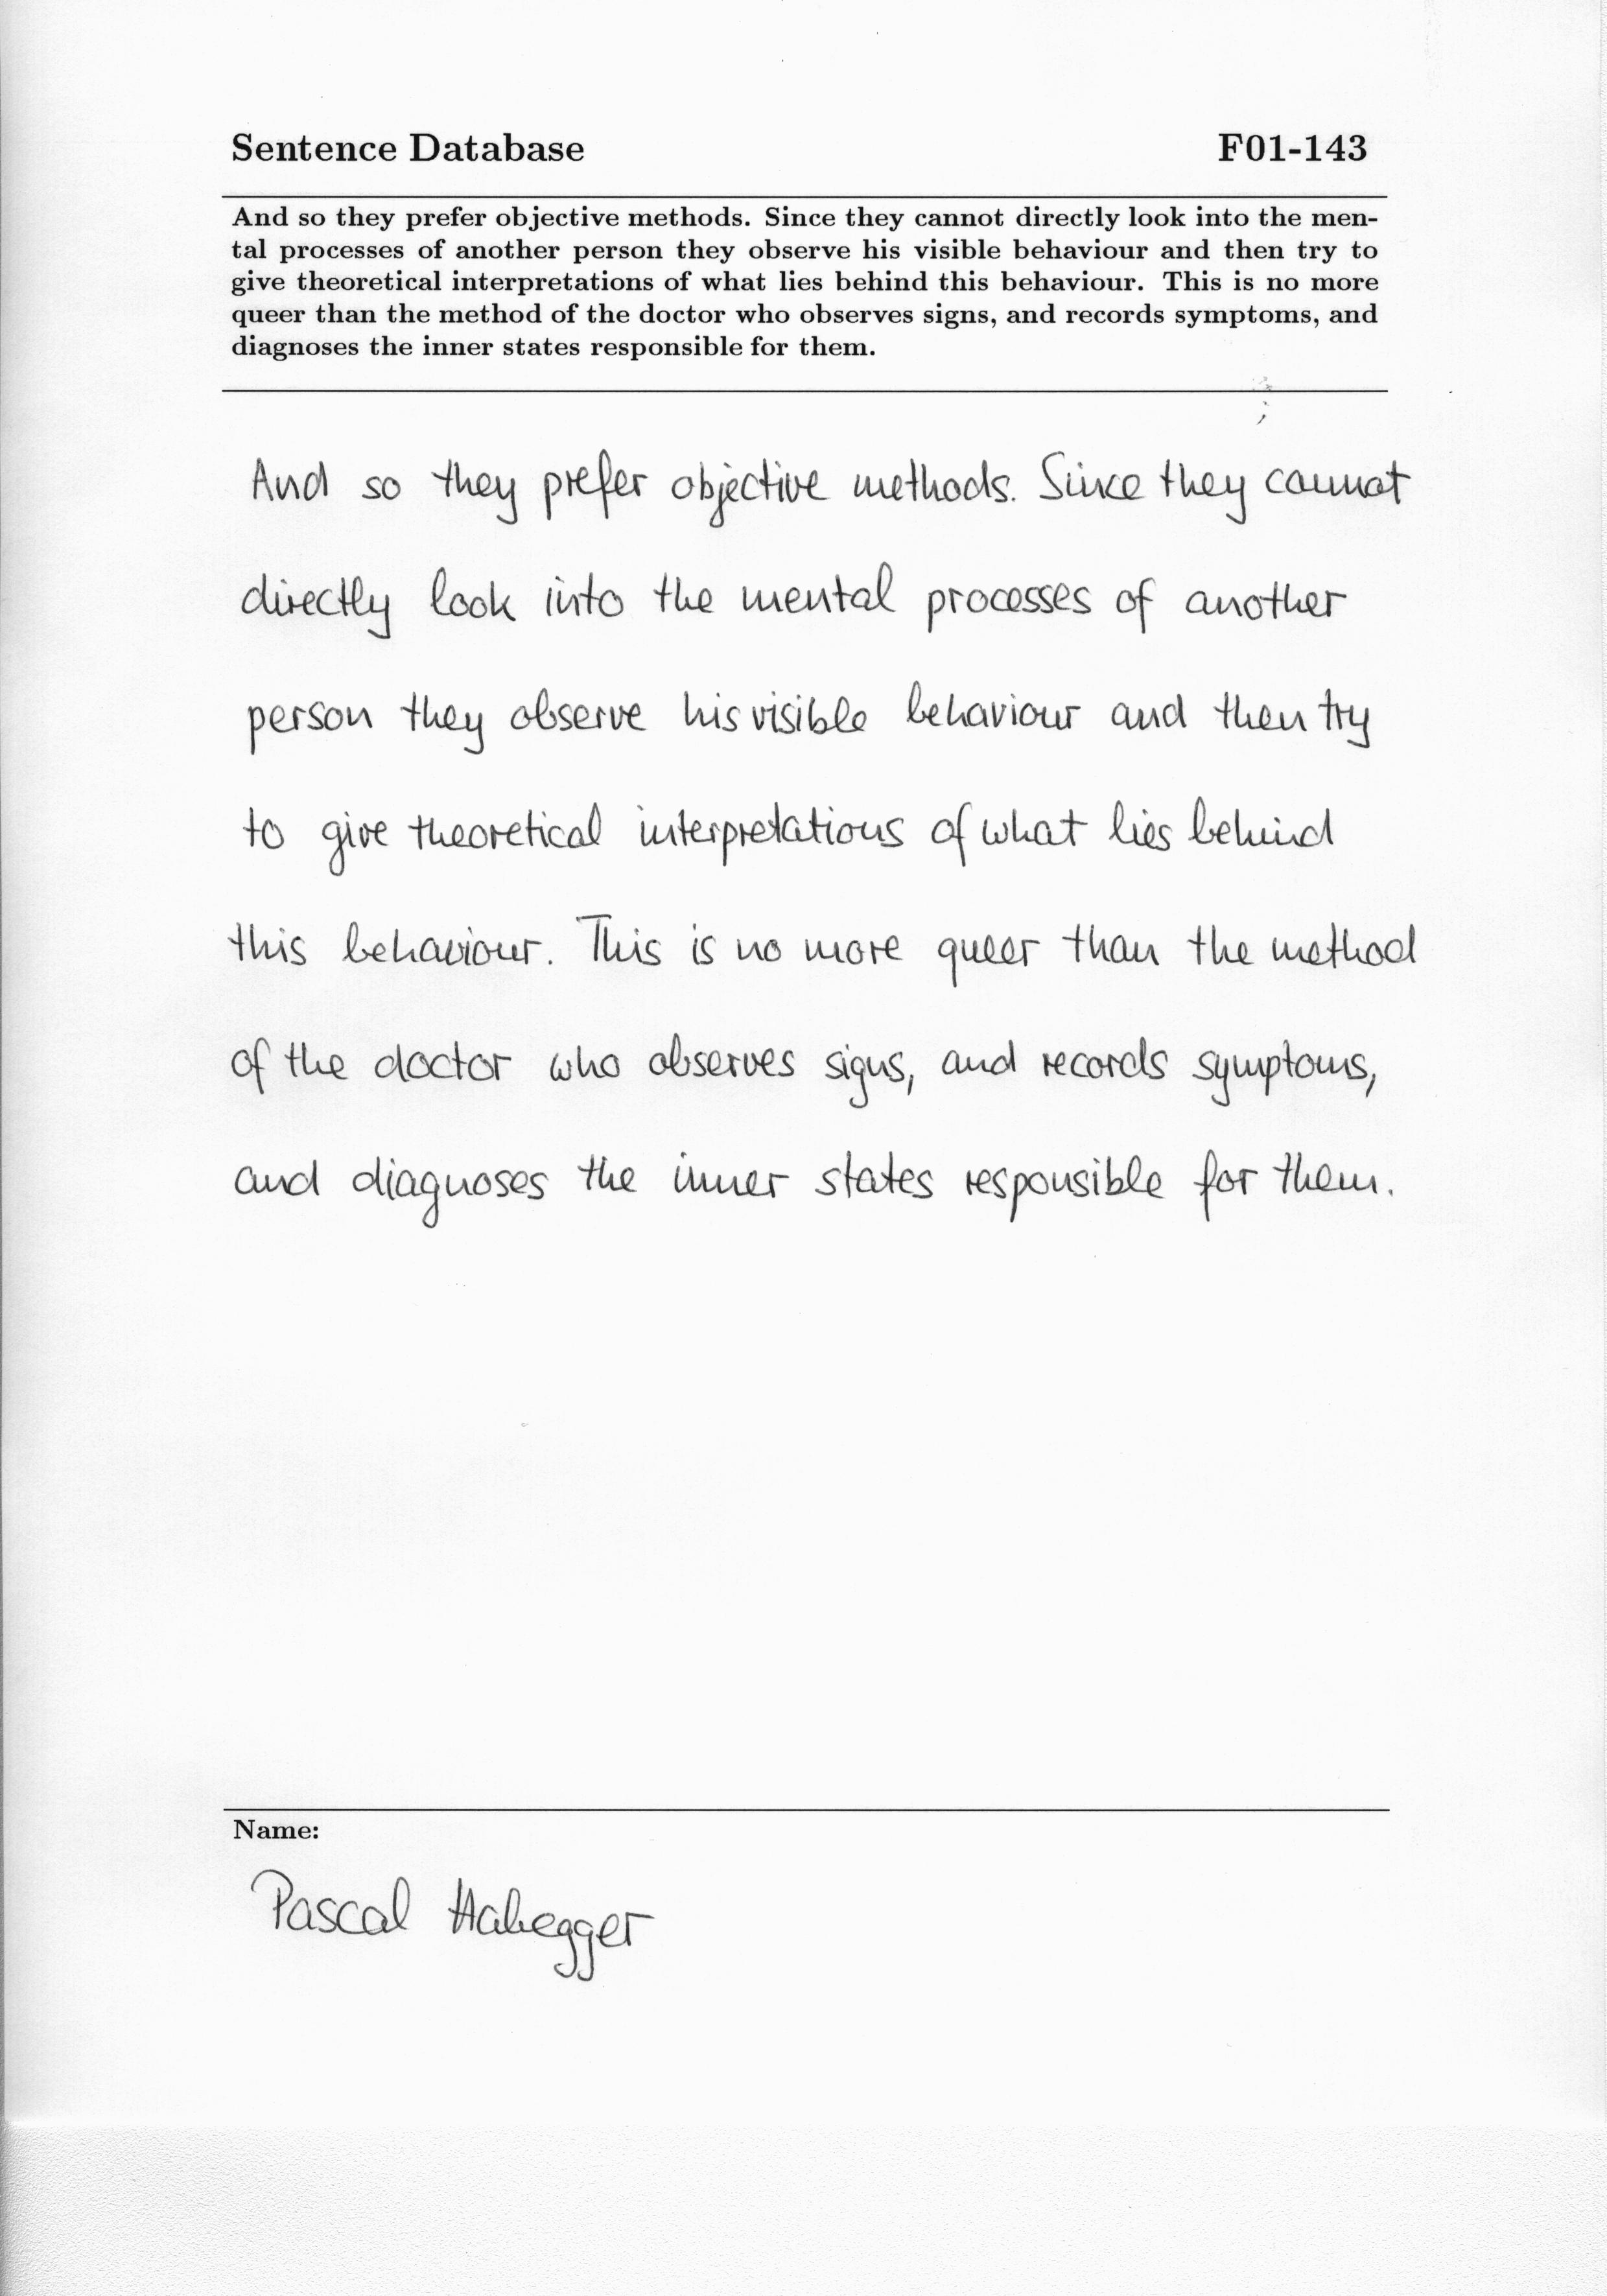 Sentence Database F01-143
And so they prefer objective methods. Since they cannot directly look into the men-
tal processes of another person they observe his visible behaviour and then try to
give theoretical interpretations of what lies behind this behaviour. This is no more
queer than the method of the doctor who observes signs, and records symptoms, and
diagnoses the inner states responsible for them.
And so they prefer objective methods. Since they cannot
directly look into the mental processes of another
person they observe his visible behaviour and then try
to give theoretical interpretations of what lies behind
this behaviour. This is no more queer than the method
of the doctor who observes signs, and records symptoms,
and diagnoses the inner states responsible for them.
Name:
Pascal Habegger